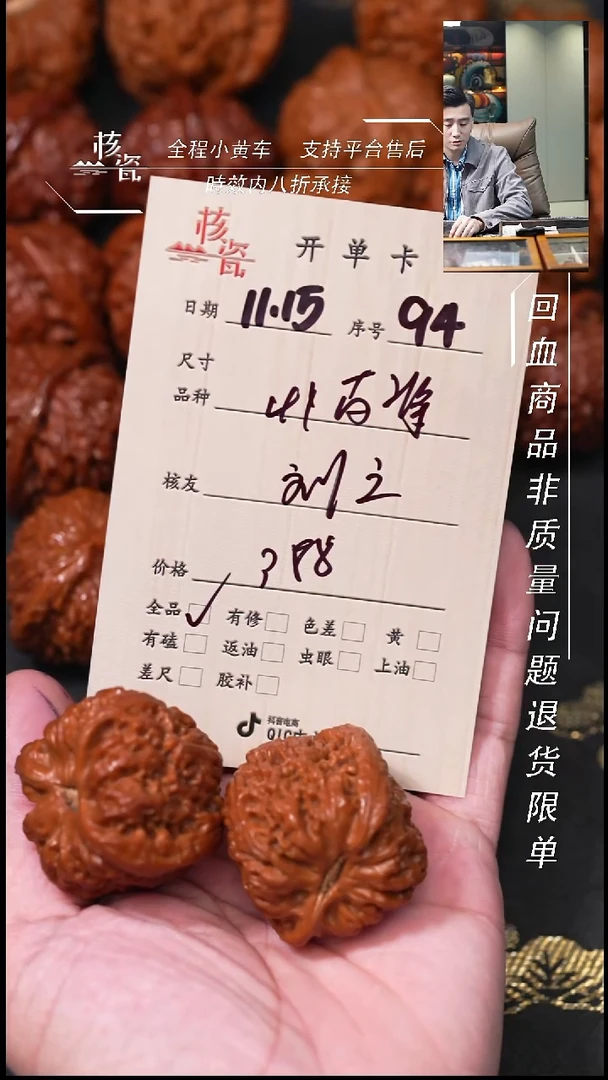 核瓷
全程小黄车 支持平台售后
時效内八折承接
核瓷
开单卡
日期 11.15 序号 94
尺寸
品种
核友 刘立
价格 398
全品 有修 色差 黄
有磕 返油 虫眼 上油
差尺 胶补
抖音电商
回血商品非质量问题退货限单